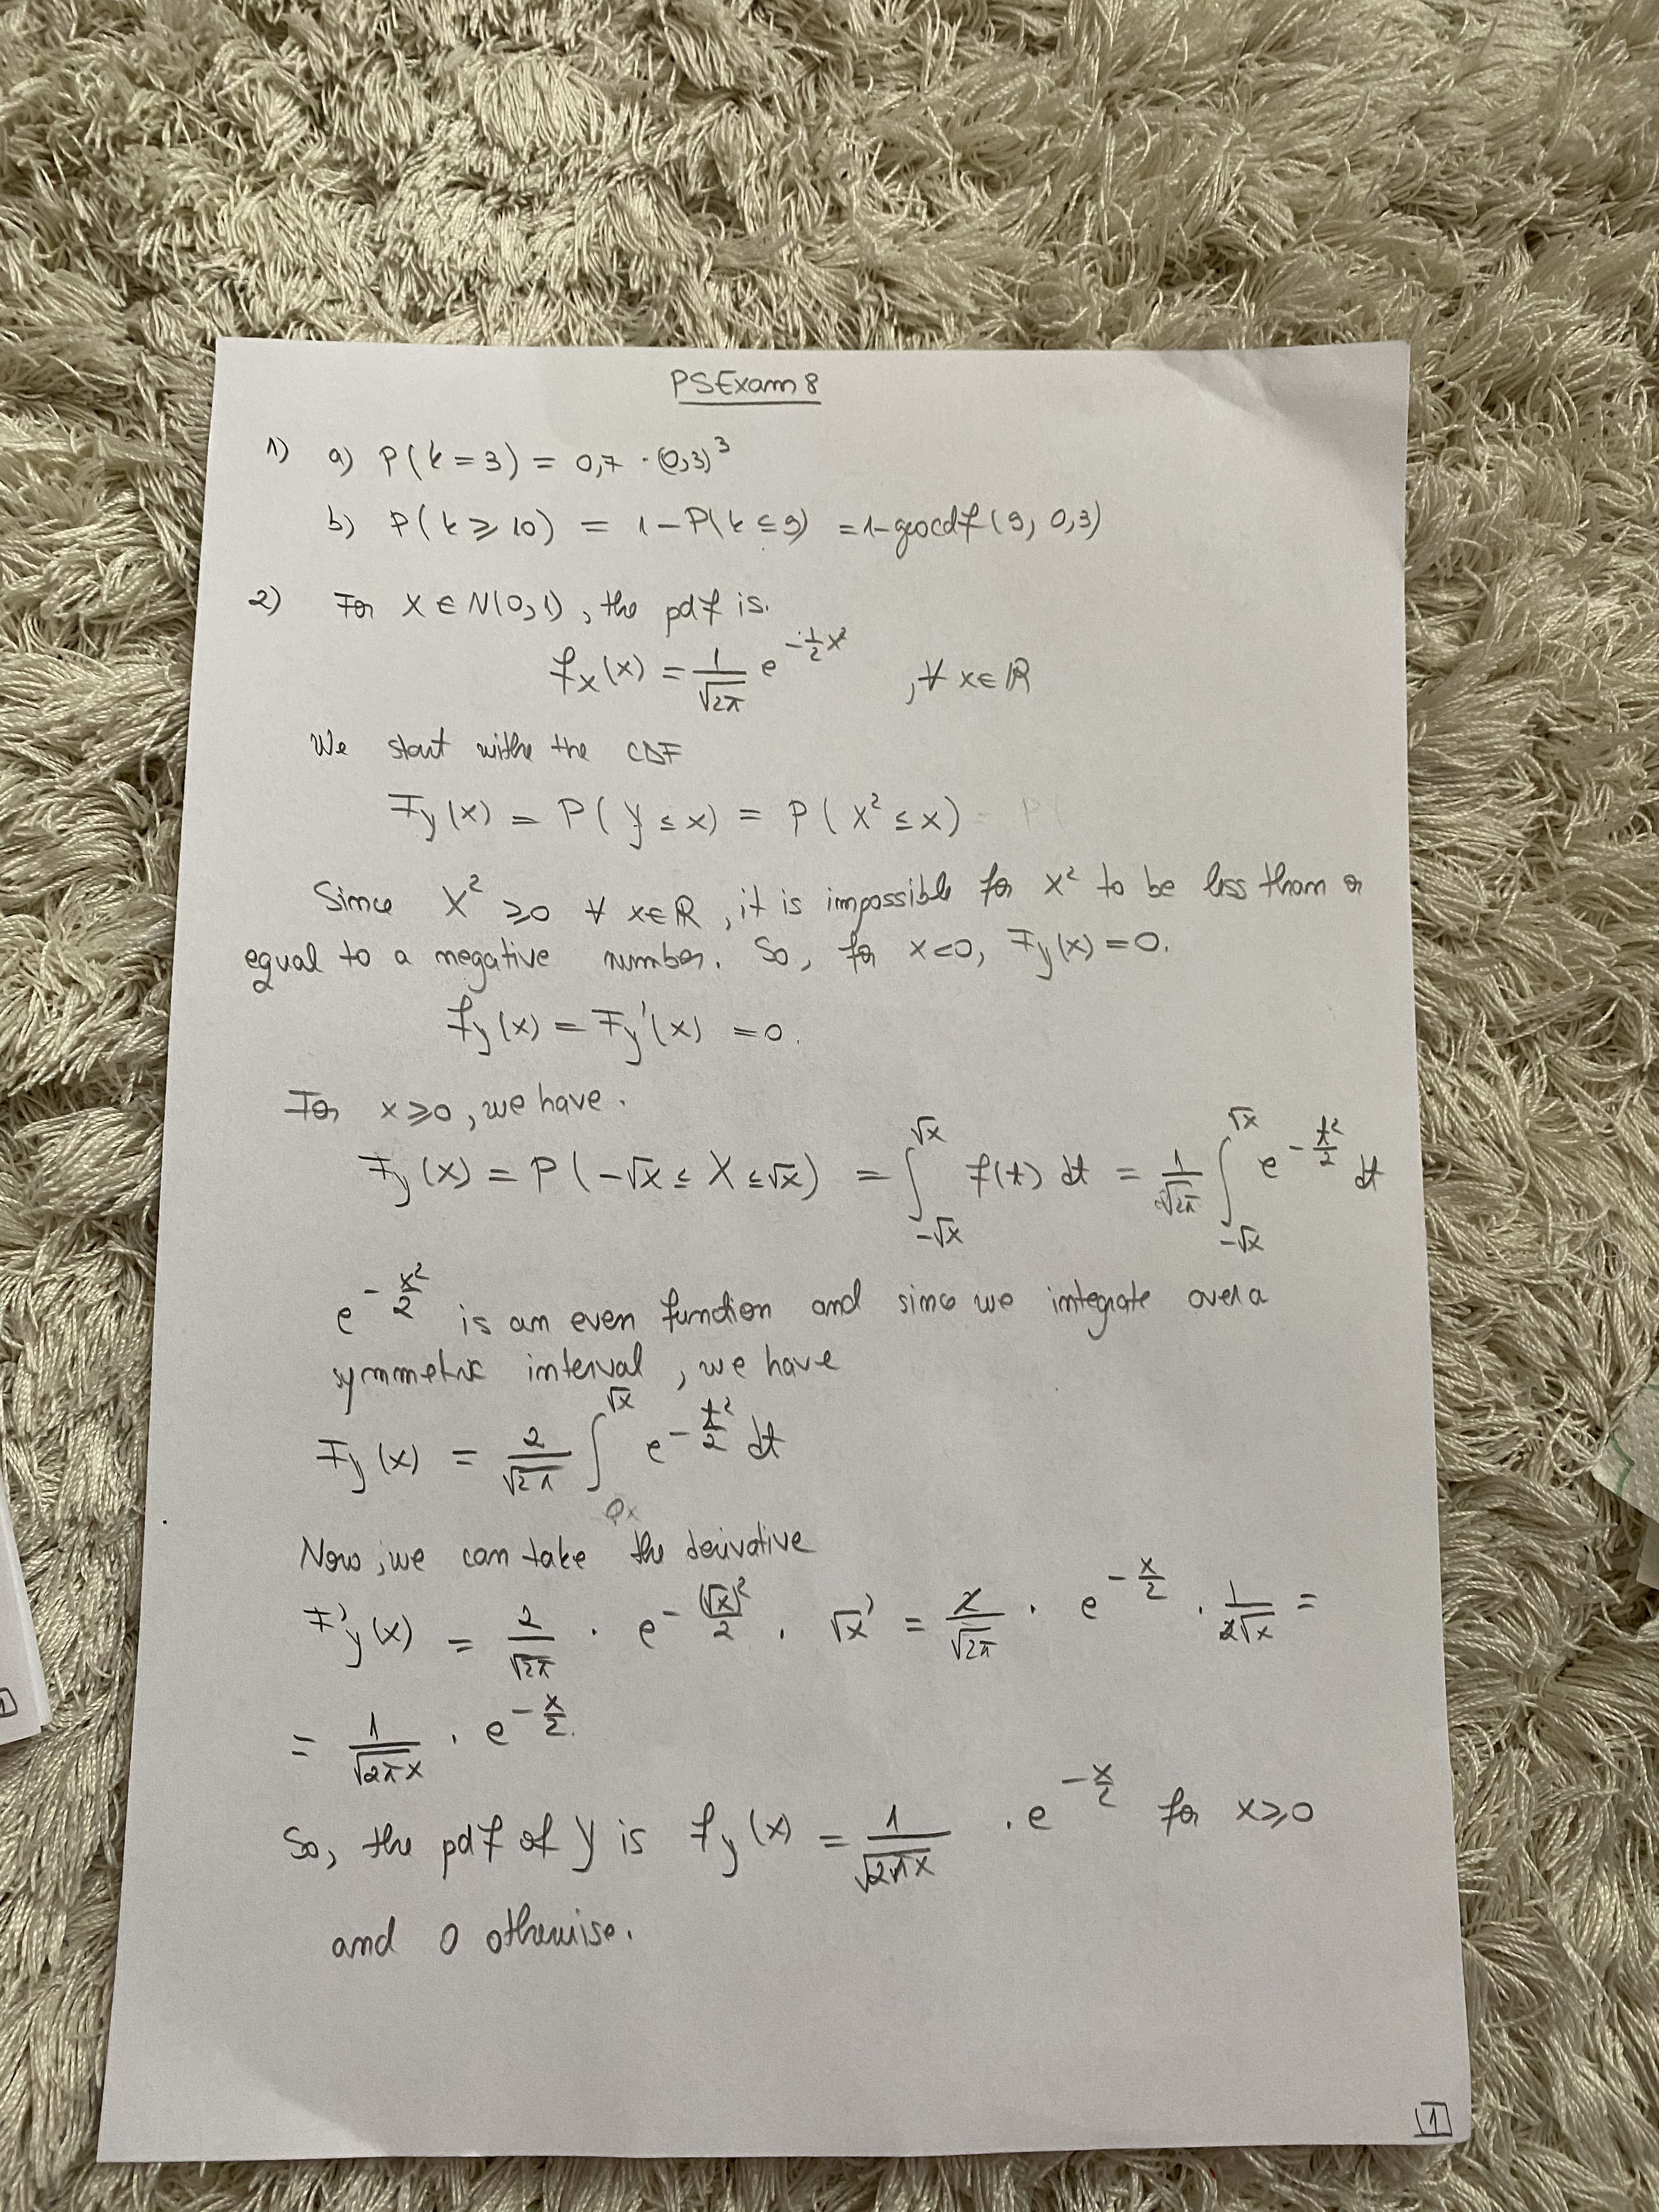 PSExam 8
1) a) P(k = 3) = 0,7 · (0,3)³
b) P(k ≥ 10) = 1 - P(k ≤ 9) = 1 - geocdf(9, 0,3)
2) For X ∈ N(0,1), the pdf is.
f_X(x) = 1/√(2π) e^(-1/2 x²) , ∀ x ∈ ℝ
We start withe the CDF
F_y(x) = P(Y ≤ x) = P(X² ≤ x)
Since X² ≥ 0 ∀ x ∈ ℝ, it is impossible for x² to be less than or
equal to a negative number. So, for x < 0, F_y(x) = 0.
f_y(x) = F_y'(x) = 0.
For x ≥ 0, we have.
F_y(x) = P(-√x ≤ X ≤ √x) = ∫_(-√x)^(√x) f(t) dt = 1/√(2π) ∫_(-√x)^(√x) e^(-t²/2) dt
e^(-x²/2) is an even function and since we integrate over a
symmetric interval, we have
F_y(x) = 2/√(2π) ∫_0^(√x) e^(-t²/2) dt
Now, we can take the derivative
F'_y(x) = 2/√(2π) · e^(-(√x)²/2) · √x' = 2/√(2π) · e^(-x/2) · 1/(2√x) =
= 1/√(2πx) · e^(-x/2).
So, the pdf of Y is f_y(x) = 1/√(2πx) · e^(-x/2) for x ≥ 0
and 0 otherwise.
1